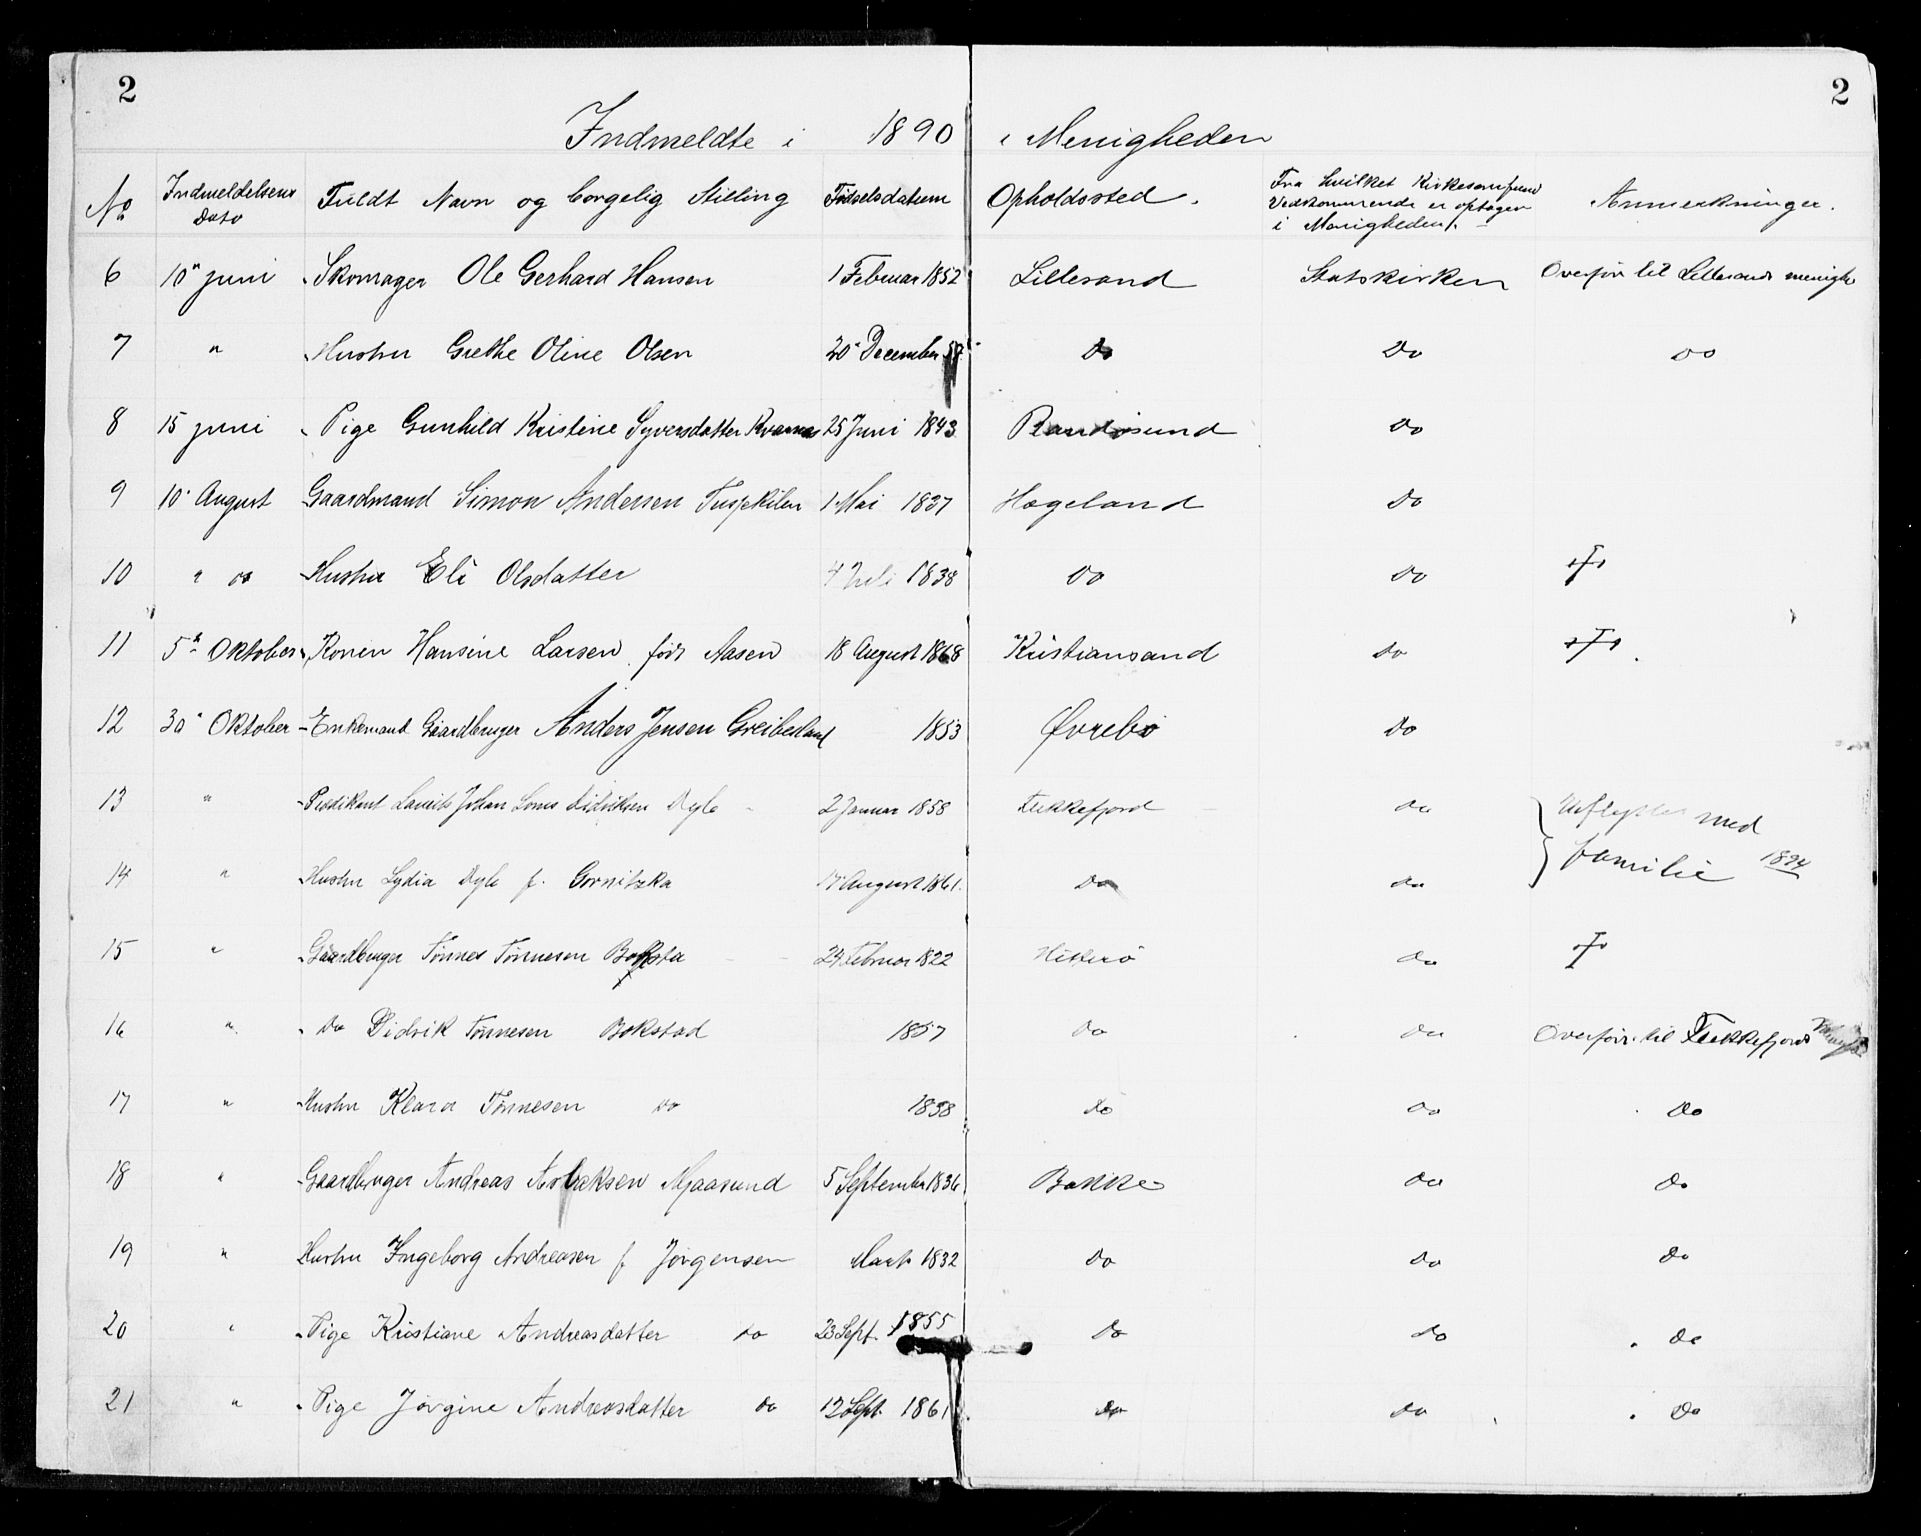 2 2
Indmeldte i 1890 i Menigheden
No Indmeldelsens Dato Fuldt Navn og borgelig Stilling Fødselsdatum Opholdssted. Fra hvilket Kirkesamfund Vedkommende er optagen i Menigheden. Anmerkninger.
6 10" juni Skomager Ole Gerhard Hansen 1 Februar 1852 Lillesand Statskirken Overført til Lillesands menigh
7 " Hustru Grethe Oline Olsen 20 December Do Do Do
8 15 juni Pige Gunhild Kristine Syversdatter Kvarnes 25 Juni 1843 Randøsund Do
9 10 August Gaardmand Simon Andersen 1 Mai 1837 Hægeland Do
10 " do Hustru Eli Olsdatter 4 Juli 1838 Do Do †
11 5te Oktober Konen Hansine Larsen født Aasen 18 August 1868 Kristiansand Do †
12 30 Oktober Enkemand Gaardbruger Anders Jensen Greibesland 1853 Øvrebø Do
13 " Prædikant Lauritz Johan Didriksen Dyle 2 Januar 1858 Flekkefjord Do Udflyttet med
14 " Hustru Lydia Dyle f. Gornitzka 17 August 1861. Do Do familie 1894
15 " Gaardbruger Tønnes Tønnesen 24 Februar 1822 Hitterø Do †
16 " Do Didrik Tønnesen Bokstad 1857 Do Do Overført til Flekkefjords
17 " Hustru Klara Tønnesen do 1838 Do Do Do
18 " Gaardbruger Andreas Aslaksen Mjaasund 5 September 1836 Bakke Do Do
19 " Hustru Ingeborg Andreasen f Jørgensen Marts 1832 Do Do Do
20 " Pige Kristiane Andreasdatter do 23 Sept. 1855 Do Do Do
21 " Pige Jørgine Andreasdatter do 12 Sept. 1861 Do Do Do